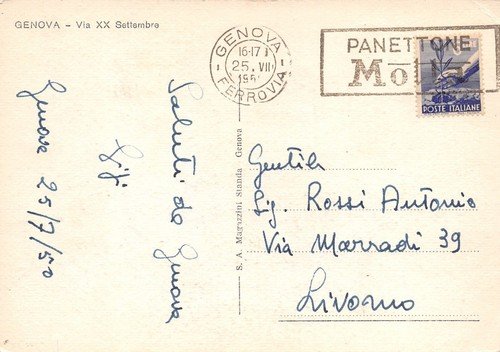 GENOVA - Via XX Settembre
GENOVA
16-17
25. VII
195
FERROVIA
PANETTONE
POSTE ITALIANE
Saluti da Genova
Genova 25/7/50
S. A. Magazzini Standa Genova
Gentile
Sig. Rossi Antonio
Via Marradi 39
Livorno